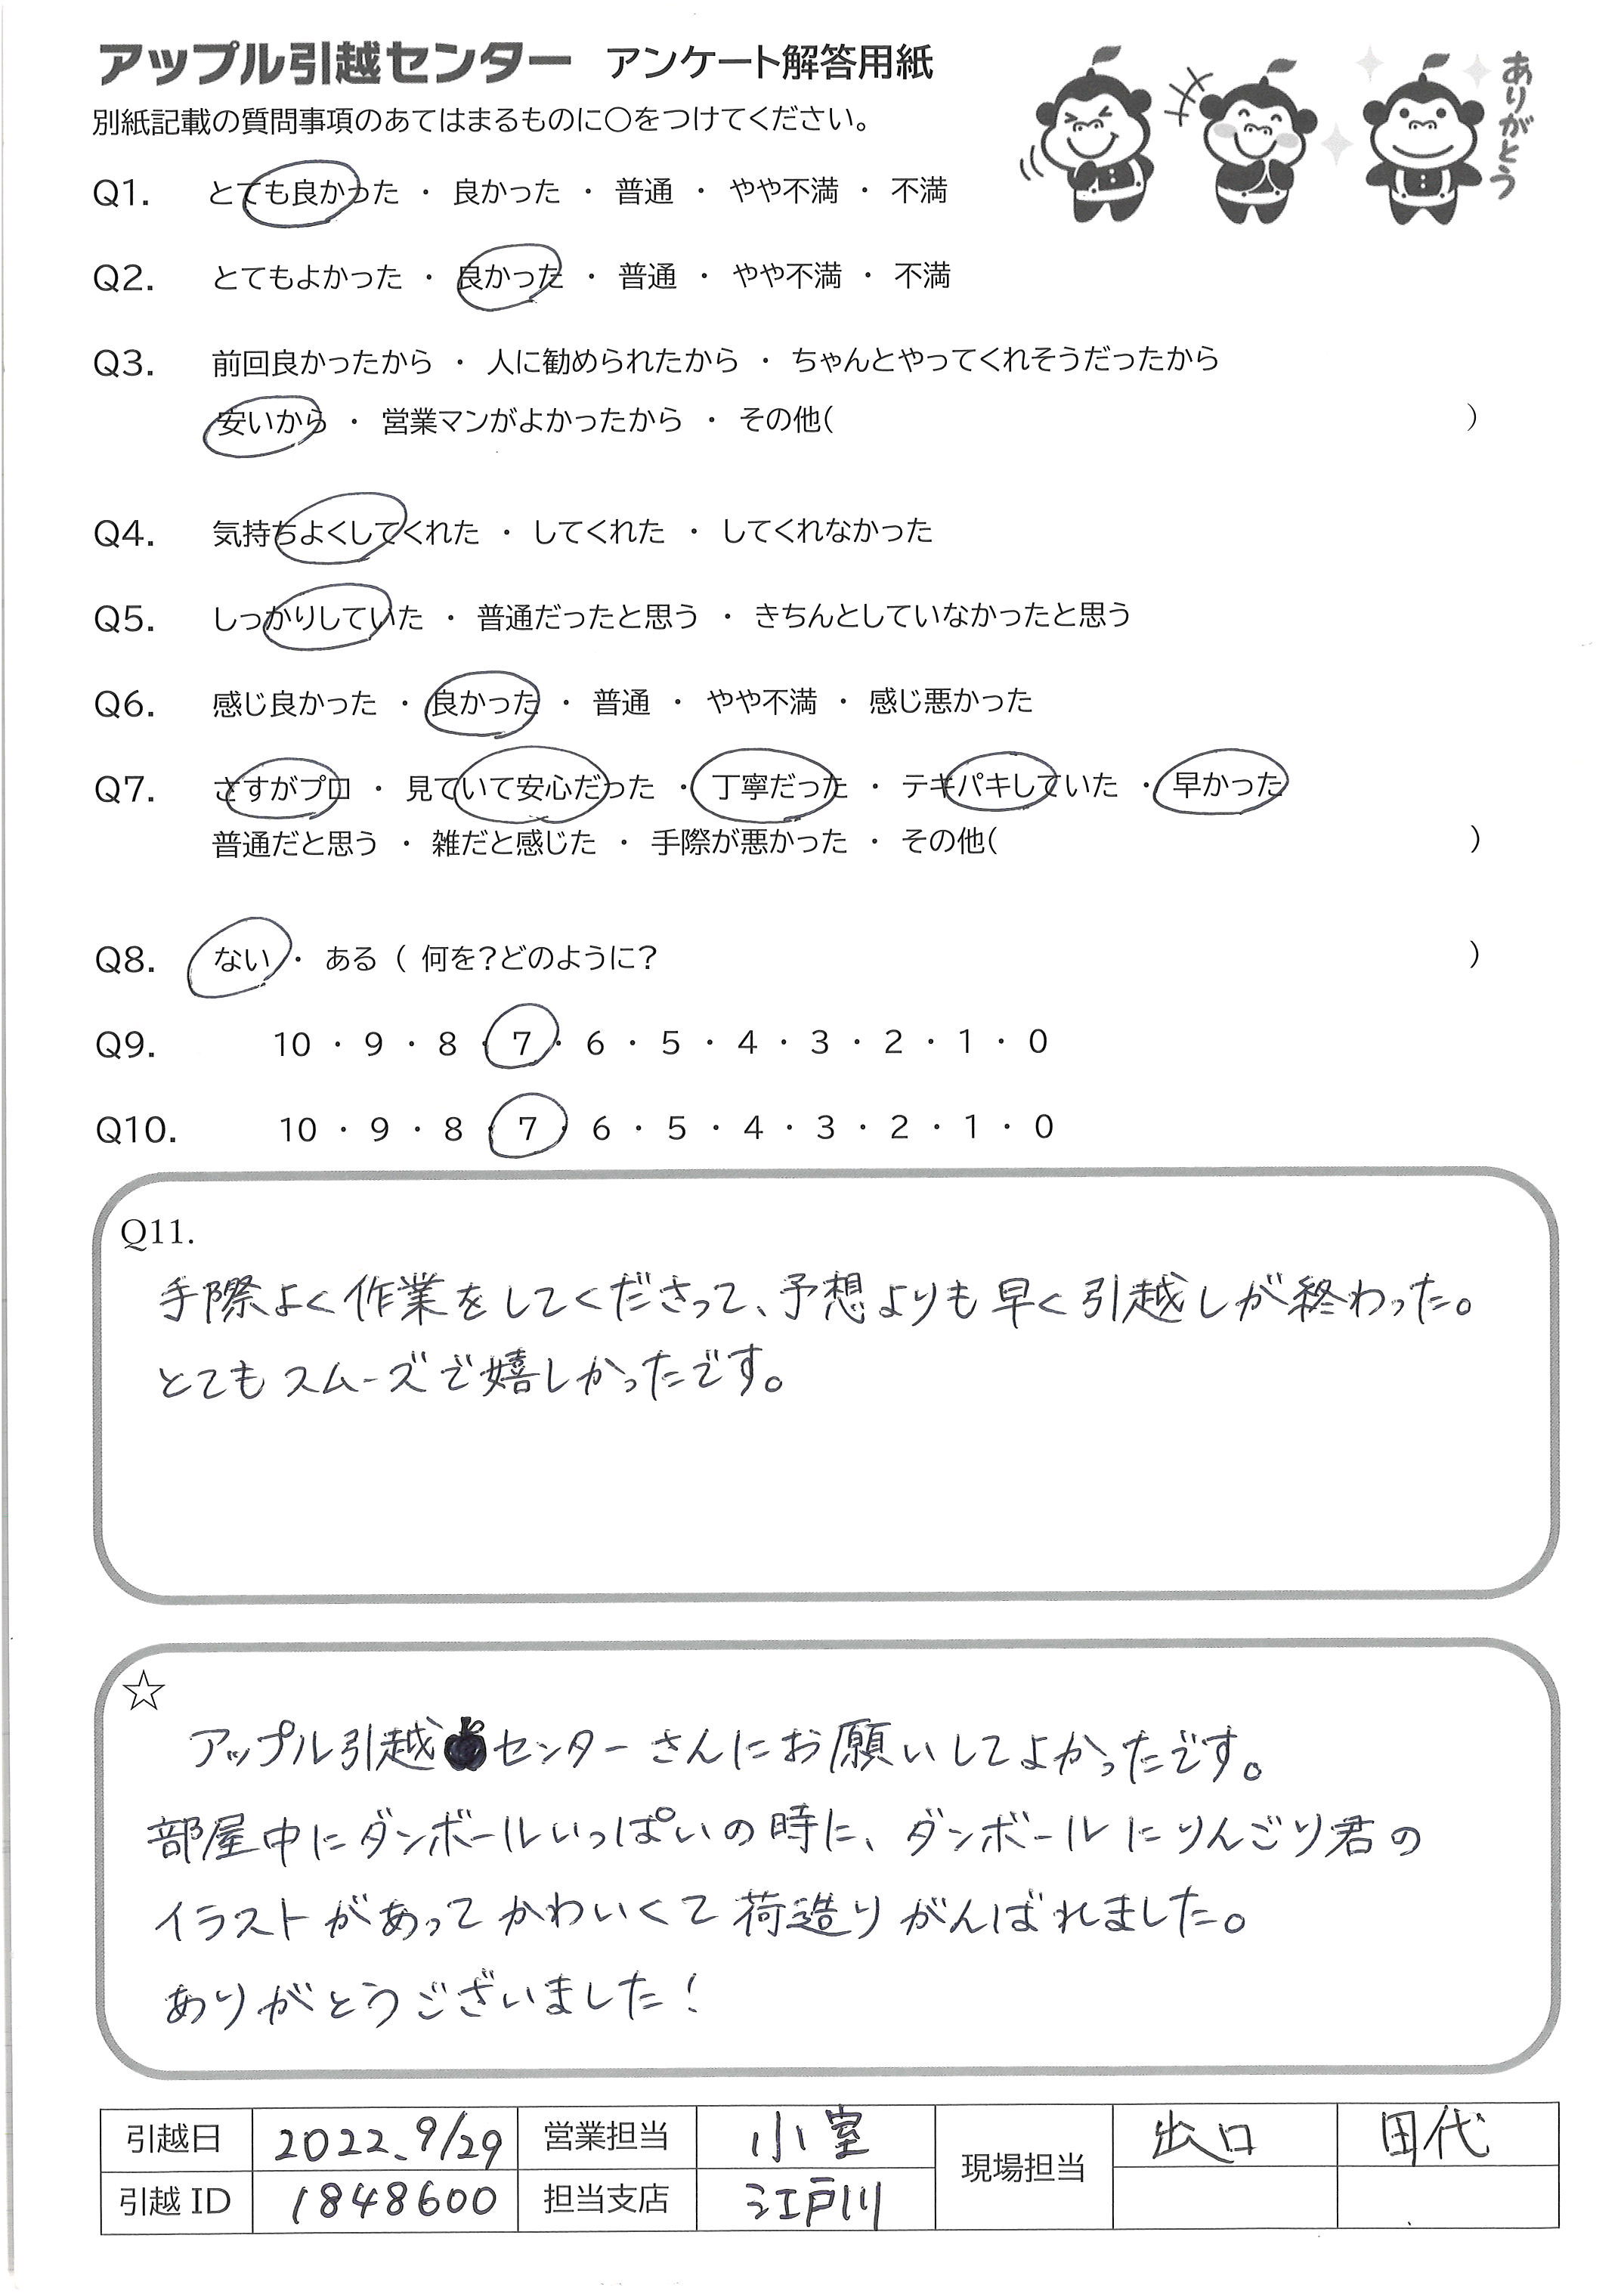 アップル引越センター アンケート解答用紙
ありがとう
別紙記載の質問事項のあてはまるものに○をつけてください。
Q1. とても良かった ・ 良かった ・ 普通 ・ やや不満 ・ 不満
Q2. とてもよかった ・ 良かった ・ 普通 ・ やや不満 ・ 不満
Q3. 前回良かったから ・ 人に勧められたから ・ ちゃんとやってくれそうだったから
安いから ・ 営業マンがよかったから ・ その他( )
Q4. 気持ちよくしてくれた ・ してくれた ・ してくれなかった
Q5. しっかりしていた ・ 普通だったと思う ・ きちんとしていなかったと思う
Q6. 感じ良かった ・ 良かった ・ 普通 ・ やや不満 ・ 感じ悪かった
Q7. さすがプロ ・ 見ていて安心だった ・ 丁寧だった ・ テキパキしていた ・ 早かった
普通だと思う ・ 雑だと感じた ・ 手際が悪かった ・ その他( )
Q8. ない ・ ある ( 何を?どのように? )
Q9. 10 ・ 9 ・ 8 ・ 7 ・ 6 ・ 5 ・ 4 ・ 3 ・ 2 ・ 1 ・ 0
Q10. 10 ・ 9 ・ 8 ・ 7 ・ 6 ・ 5 ・ 4 ・ 3 ・ 2 ・ 1 ・ 0
Q11.
手際よく作業をしてくださって、予想よりも早く引越しが終わった。
とてもスムーズで嬉しかったです。
☆
アップル引越センターさんにお願いしてよかったです。
部屋中にダンボールいっぱいの時に、ダンボールにりんごり君の
イラストがあってかわいくて荷造りがんばれました。
ありがとうございました!
引越日 2022.9/29 営業担当 小室 現場担当 出口 田代
引越ID 1848600 担当支店 江戸川